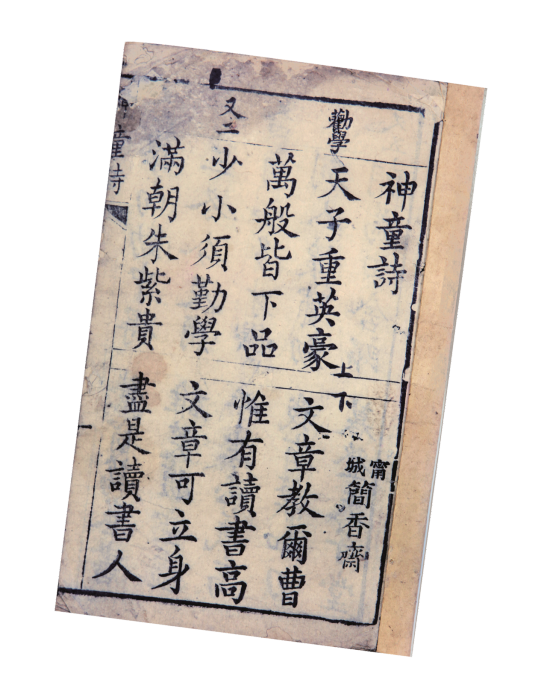 神童詩 甯城簡香齋
勸學
天子重英豪 上下 文章教爾曹
萬般皆下品 惟有讀書高
又二
少小須勤學 文章可立身
滿朝朱紫貴 盡是讀書人
童詩